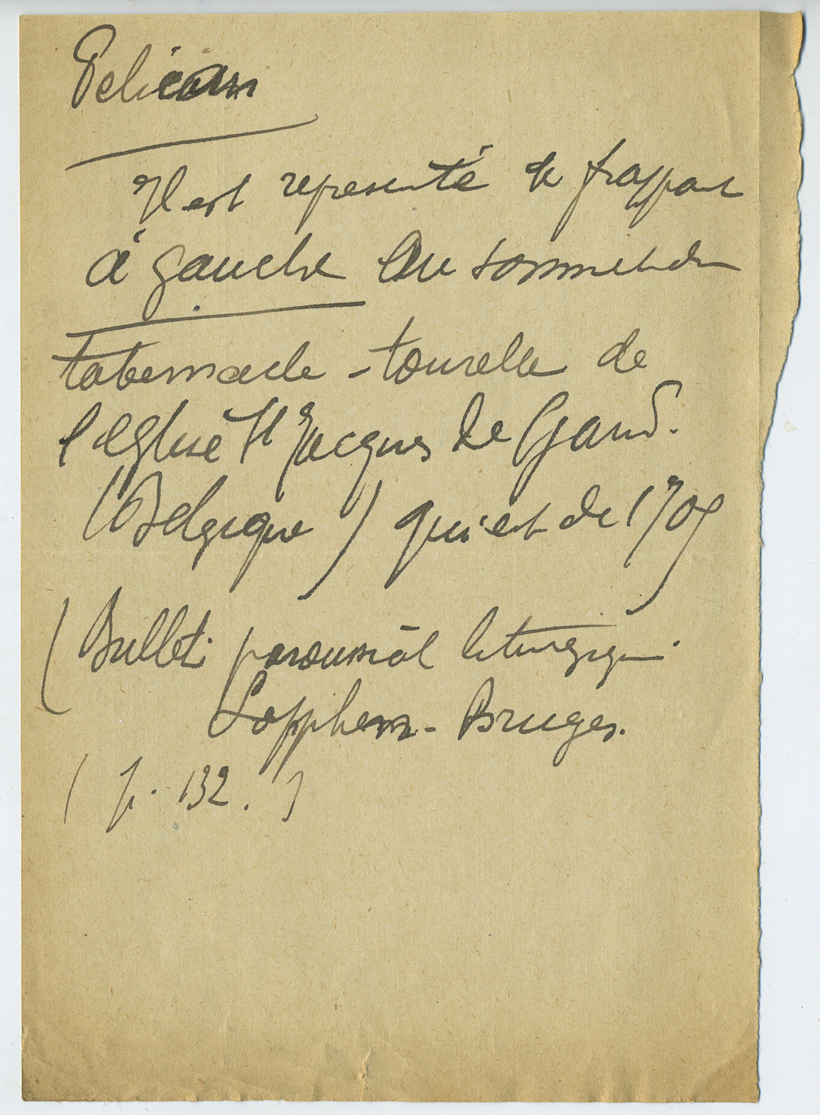 Pelican
Il est représenté se frappant
à gauche au sommet du
tabernacle-tourelle de
l'église St Jacques de Gand.
(Belgique) qui est de 170
(Bulleti paroissial liturgiqu.
Lophem - Bruges.
(p. 132.)